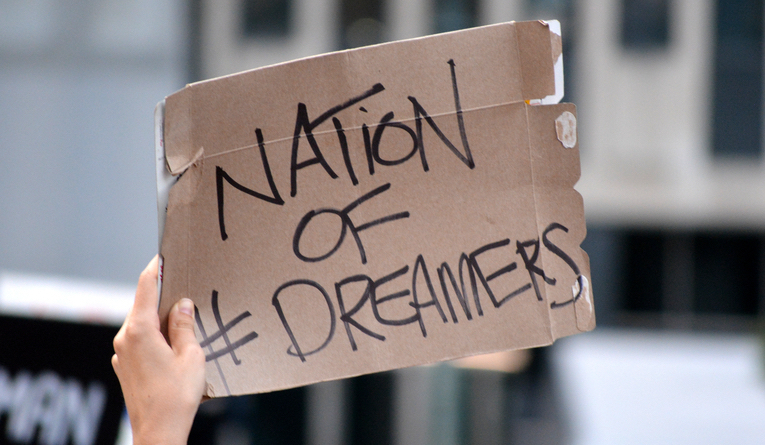 NATiON
OF
#DREAMERS
MAN